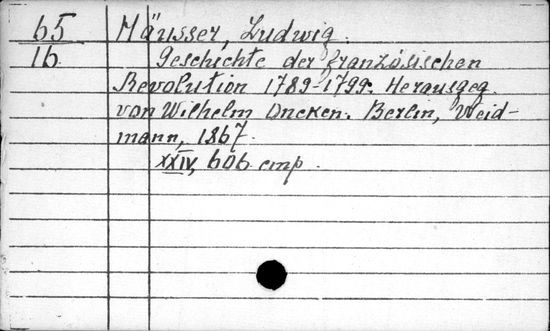 65 Häusser, Ludwig.
16 Geschichte der französischen
Revolution 1789-1799. Herausgeg.
von Wilhelm Oncken. Berlin, Weid-
mann, 1867.
XXIV, 606 стр.